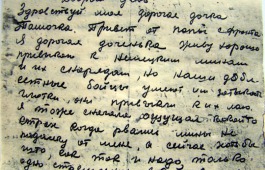 Добрый день
Здравствуй моя дорогая дочка
Томочка Привет от папы с фронта
Я дорогая доченька живу хорошо
привыкли к немецким минам
и их снарядам, но наши добл
естные бойцы умеют им затыкать
глотки, они привыкли к их лаю
Я тоже сначала ощущал какой то
страх когда рвались мины не
подалеку от меня, а сейчас хоть бы
что, так и надо, только
одно